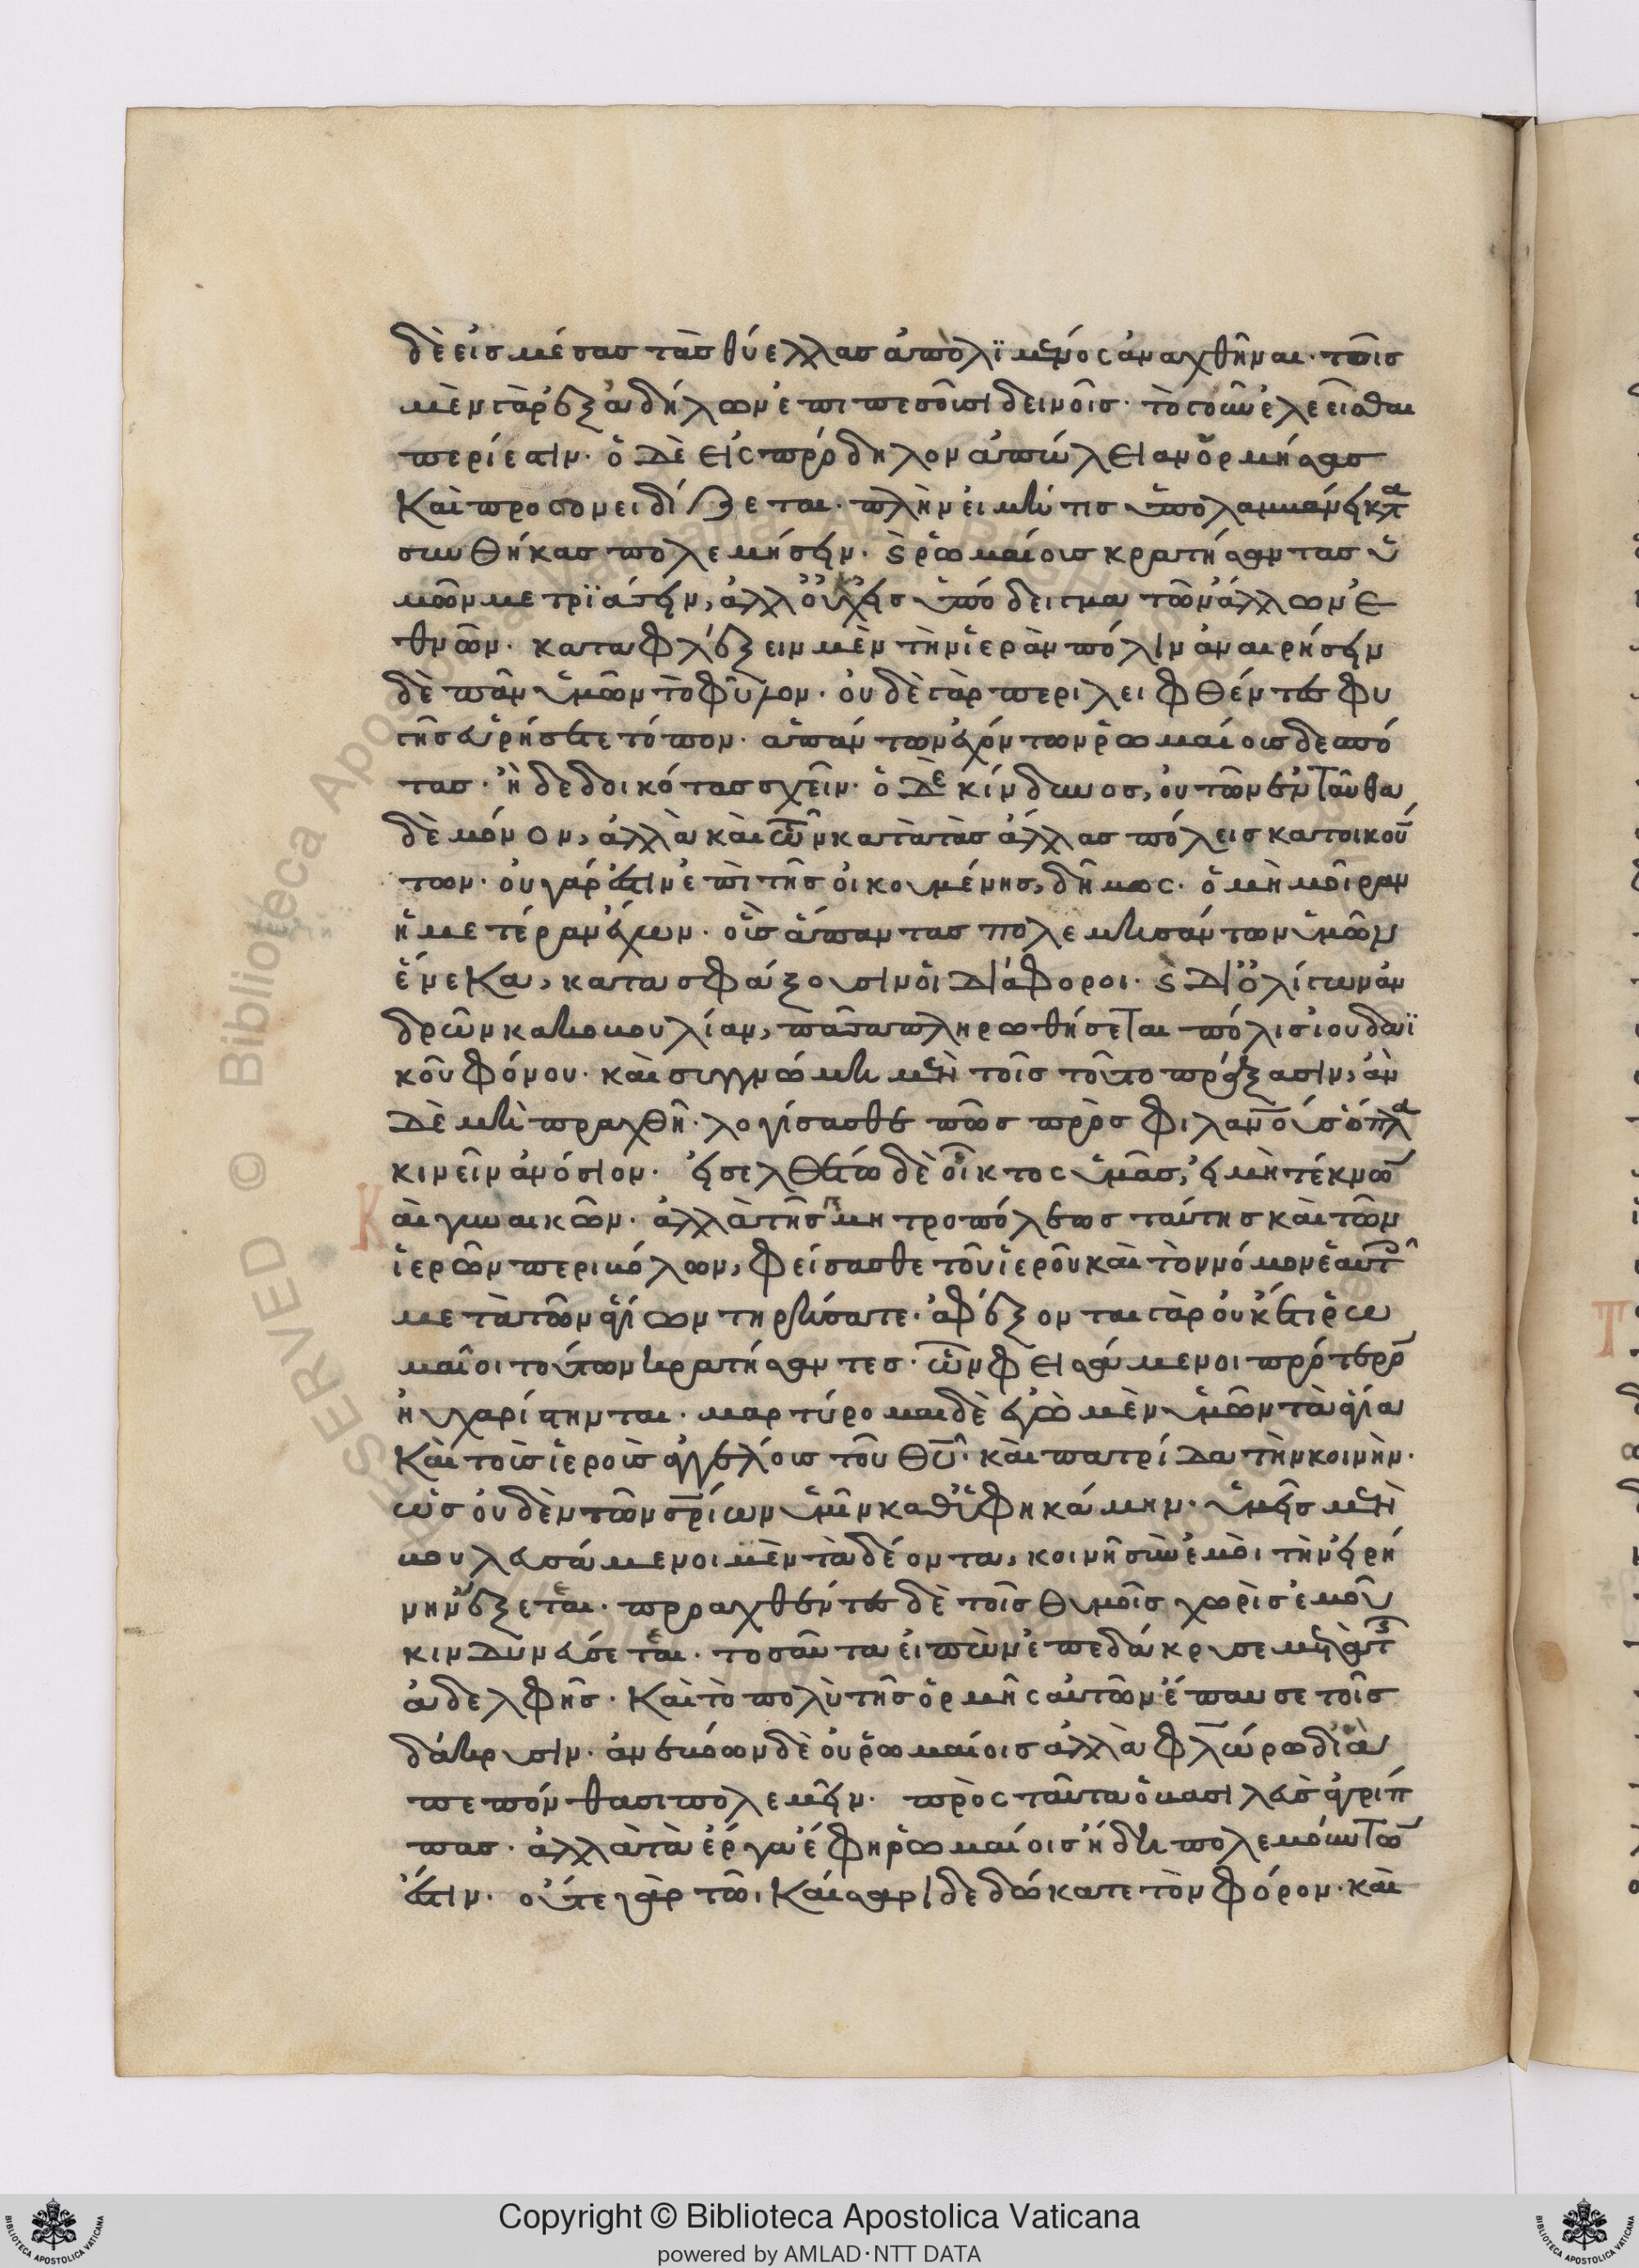 δὲ εἰσ μέσασ τὰσ θυέλλασ ἀπολϊμένος ἀναχθῆναι· τοῖσ
μὲν γὰρ ἐξ ἀδήλων ἐπιπεσοῦσι δεινοῖσ· τὸ γοῦν ἐλεεῖσθαι
περίεστιν· ὁ δὲ εἰς πρόδηλον ἀπώλειαν ὁρμήσασ
καὶ προσονειδίζεται· πλὴν εἰ μή τισ ὑπολαμβάνει κατὰ
συνθήκασ πολεμήσειν· καὶ ῥωμαίοισ κρατήσαντασ ὑ
μῶν μετρϊάσειν, ἀλλ' οὐκ εἰσ ὑπόδειγμα τῶν ἄλλων ἐ
θνῶν· καταφλέξειν μὲν τὴν ἱερὰν πόλιν ἀναιρήσειν
δὲ πᾶν ὑμῶν τὸ φῦλον· οὐδὲ γὰρ περιλειφθέντεσ φυ
γῆσ εὑρήσετε τόπον· ἁπάντων ἐχόντων ῥωμαίουσ δεσπό
τασ· ἢ δεδοικότασ σχεῖν· ὁ δὲ κίνδυνοσ, οὐ τῶν ἐνταῦθα
δὲ μόνον, ἀλλὰ καὶ τῶν κατὰ τὰσ ἄλλασ πόλεισ κατοικού
των· οὐ γάρ ἐστιν ἐπὶ τῆσ οἰκουμένησ, δῆμος· ὁ μὴ μοῖραν
ἡμετέραν ἔχων· οἷσ ἅπαντασ πολεμησάντων ὑμῶν
ἕνεκα, κατασφάξουσιν οἱ διάφοροι· καὶ δι' ὀλίγων ἀν
δρῶν κακοβουλίαν, πᾶσα πληρωθήσεται πόλισ ἰουδαϊ
κοῦ φόνου· καὶ συγγνώμη μὲν τοῖσ τοῦτο πράξασιν, ἂν
δὲ μὴ πραχθῆ· λογίσασθε πῶσ πρὸσ φιλανουσ ὅπλα
κινεῖν ἀνόσιον· εἰσελθέτω δὲ οἶκτος ὑμᾶσ, εἰ μὴ τέκνων
καὶ γυναικῶν· ἀλλὰ τῆσ μητροπόλεωσ ταύτησ καὶ τῶν
ἱερῶν περιβόλων, φείσασθε τοῦ ἱεροῦ καὶ τὸν νόμον ἑαυτ
μετὰ τῶν ἁγίων τηρήσατε· ἀφέξονται γὰρ οὐκέτι ῥω
μαῖοι τούτων κρατήσαντεσ· ὧν φεισάμενοι πρότερον
ἠχαρίστηνται· μαρτύρομαι δὲ ἐγὼ μὲν ὑμῶν τὰ ἅγια
καὶ τοὺσ ἱεροὺσ ἀγγέλουσ τοῦ θυ· καὶ πατρίδα τὴν κοινὴν·
ὡσ οὐδὲν τῶν σρίων ὑμῖν καθϋφηκάμην· ὑμεῖσ μὲν
βουλευσάμενοι μὲν τὰ δέοντα, κοινὴ σὺν ἐμοὶ τὴν εἰρή
νην ἕξεται· προαχθέντεσ δὲ τοῖσ θυμοῖσ χωρὶσ ἐμοῦ
κινδυνεύσεται· τοσαῦτα εἰπὼν ἐπεδάκρυσε μετὰ τ
ἀδελφῆσ· καὶ τὸ πολὺ τῆσ ὁρμῆς αὐτῶν ἔπαυσε τοῖσ
δάκρυσιν· ἀνεβόων δὲ οὐ ῥωμαίοισ ἀλλὰ φλώρω δι' ἃ
πεπόνθασι πολεμεῖν· πρὸς ταῦτα ὁ βασιλεὺσ ἀγρίπ
πασ· ἀλλὰ τὰ ἔργα ἔφη ῥωμαίοισ ἤδη πολεμούντων
ἐστιν· οὔτε γὰρ τῶι καίσαρι δεδώκατε τὸν φόρον· καὶ
Copyright © Biblioteca Apostolica Vaticana
powered by AMLAD·NTT DATA